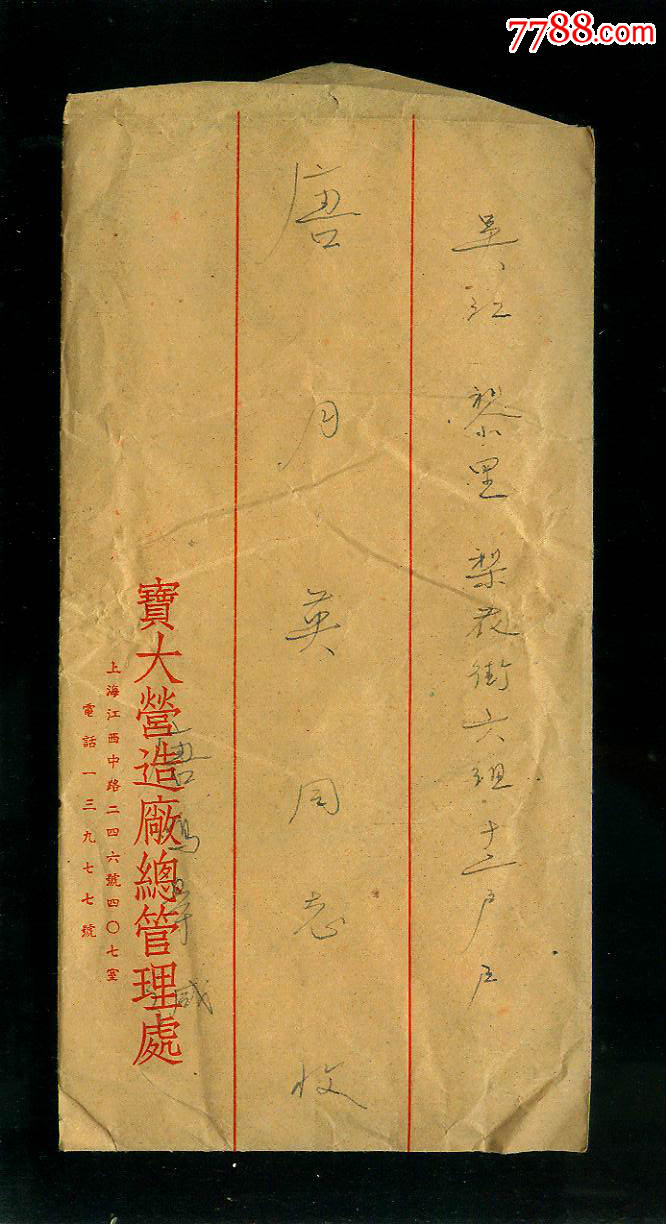 7788.com
吴江 黎里 梨花街六组 十一户
唐月英同志收
寶大營造廠總管理處
上海江西中路二四六號四〇七室
電話一三九七七號
唐 鴻 咸